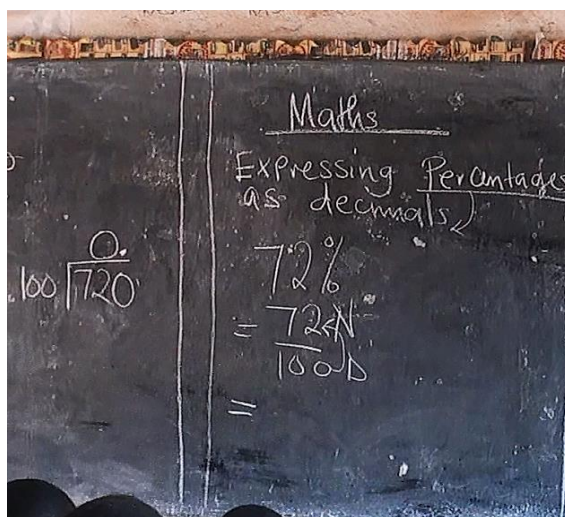 0.
100 720
Maths
Expressing Percantages
as decimals
72%
= 72 N
100 D
=